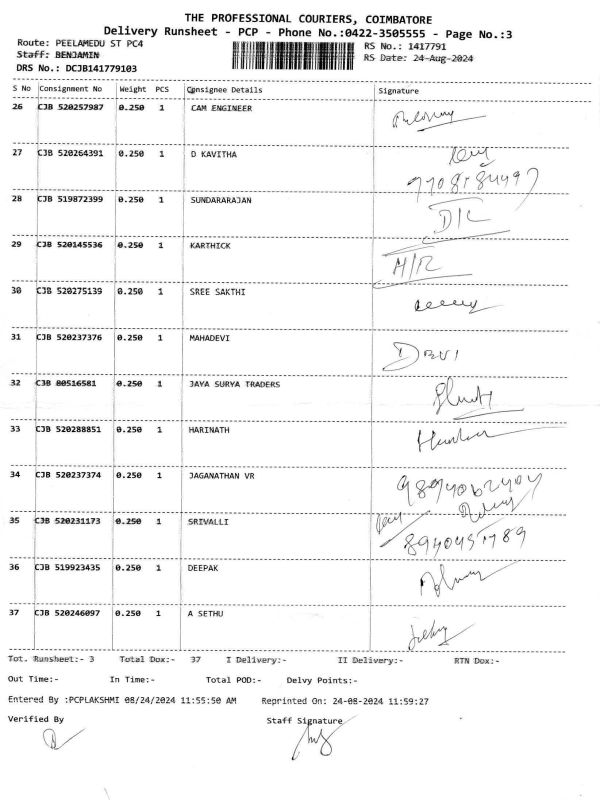 THE PROFESSIONAL COURIERS, COIMBATORE
Delivery Runsheet - PCP - Phone No.:0422-3505555 - Page No.:3
Route: PEELAMEDU ST PC4 RS No.: 1417791
Staff: BENJAMIN RS Date: 24-Aug-2024
DRS No.: DCJB141779103
S No Consignment No Weight PCS Consignee Details Signature
26 CJB 520257987 0.250 1 CAM ENGINEER
27 CJB 520264391 0.250 1 D KAVITHA
28 CJB 519872399 0.250 1 SUNDARARAJAN D/R
29 CJB 520145536 0.250 1 KARTHICK H/R
30 CJB 520275139 0.250 1 SREE SAKTHI
31 CJB 520237376 0.250 1 MAHADEVI DEVI
32 CJB 80516581 0.250 1 JAYA SURYA TRADERS
33 CJB 520288851 0.250 1 HARINATH
34 CJB 520237374 0.250 1 JAGANATHAN VR 9894062404
35 CJB 520231173 0.250 1 SRIVALLI
36 CJB 519923435 0.250 1 DEEPAK
37 CJB 520246097 0.250 1 A SETHU
Tot. Runsheet:- 3 Total Dox:- 37 I Delivery:- II Delivery:- RTN Dox:-
Out Time:- In Time:- Total POD:- Delvy Points:-
Entered By :PCPLAKSHMI 08/24/2024 11:55:50 AM Reprinted On: 24-08-2024 11:59:27
Verified By Staff Signature